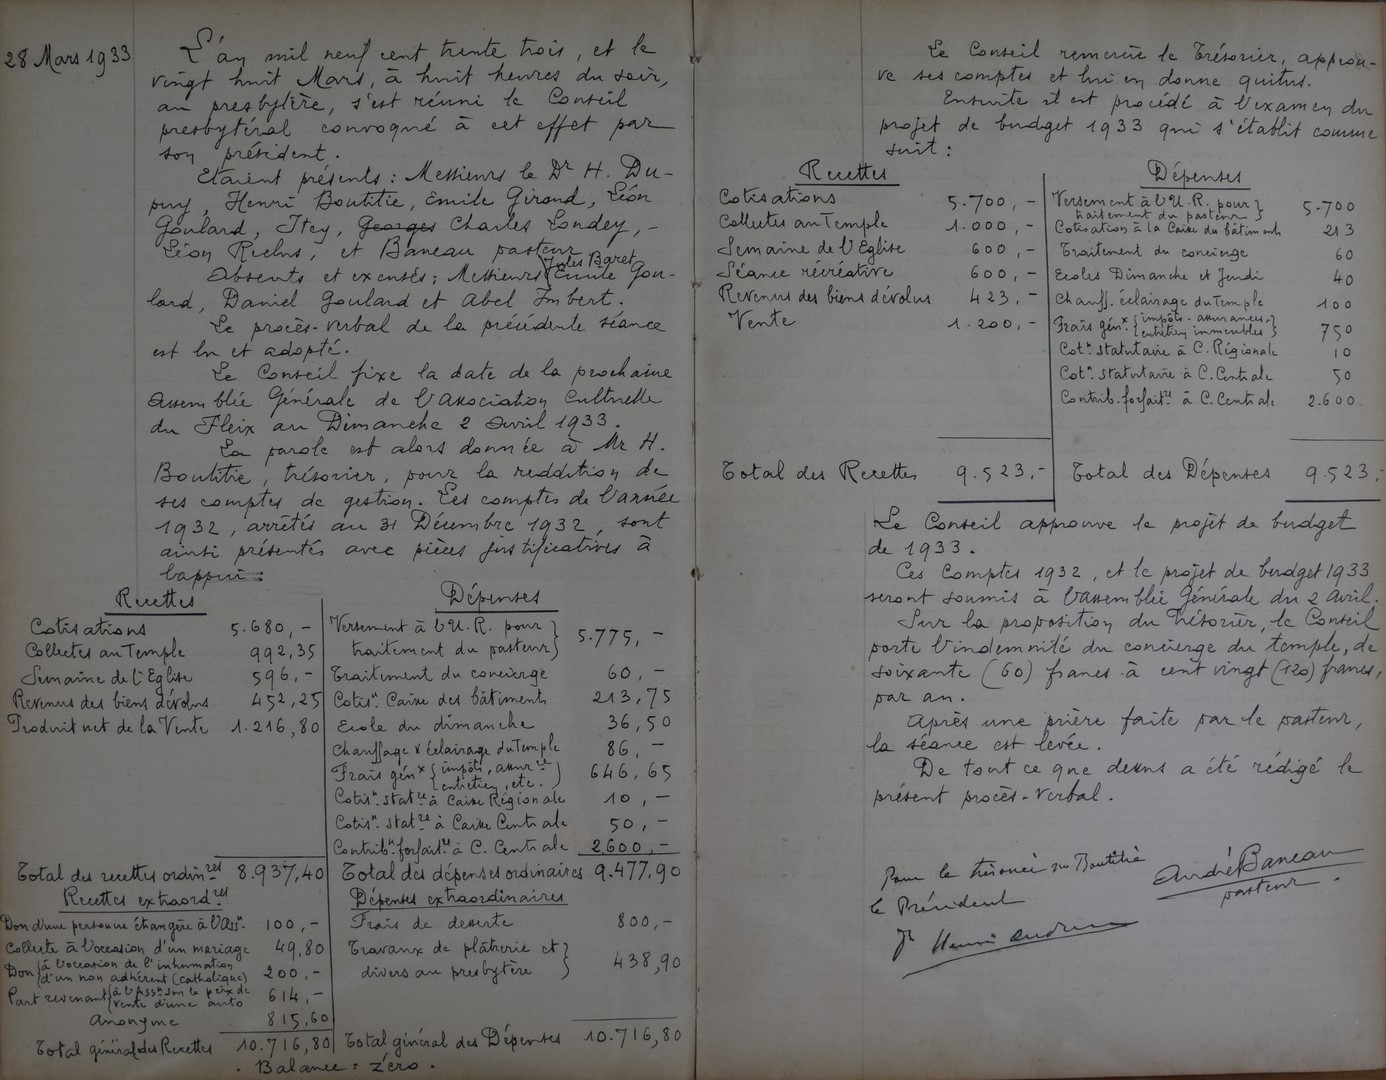 28 Mars 1933
L'an mil neuf cent trente trois, et le
vingt huit Mars, à huit heures du soir,
au presbytère, s'est réuni le Conseil
presbytéral convoqué à cet effet par
son président.
Etaient présents : Messieurs le Dr H. Du-
puy, Henri Boutitie, Emile Giraud, Léon
Goulard, Itey, Georges Charles Londey, -
Léon Reclus, et Baneau pasteur
Jules Baret
Absents et excusés ; Messieurs Emile Gou-
lard, Daniel Goulard et Abel Imbert.
Le procès-verbal de la précédente séance
est lu et adopté.
Le Conseil fixe la date de la prochaine
Assemblée Générale de l'Association Cultuelle
du Fleix au Dimanche 2 Avril 1933.
La parole est alors donnée à Mr H.
Boutitie, trésorier, pour la reddition de
ses comptes de gestion. Les comptes de l'année
1932, arrêtés au 31 Décembre 1932, sont
ainsi présentés avec pièces justificatives à
l'appui :
Recettes
Cotisations 5.680,-
Collectes au Temple 992,35
Semaine de l'Eglise 596,-
Revenus des biens dévolus 452,25
Produit net de la Vente 1.216,80
Total des recettes ordinres 8.937,40
Recettes extraord.res
Don d'une personne étrangère à l'Assn 100,-
Collecte à l'occasion d'un mariage 49,80
Don { à l'occasion de l'inhumation
d'un non adhérent (catholique) 200,-
Part revenant { à l'Assn sur le prix de
vente d'une auto 614,-
Anonyme 815,60
Total général des Recettes 10.716,80
Dépenses
Versement à l'U.R. pour
traitement du pasteur } 5.775,-
Traitement du concierge 60,-
Cotisn Caisse des bâtiments 213,75
Ecole du dimanche 36,50
Chauffage & éclairage du Temple 86,-
Frais génx { impôts, assurce
entretien, etc. } 646,65
Cotisn. statre à Caisse Régionale 10,-
Cotisn. statre à Caisse Centrale 50,-
Contribn forfaitre à C. Centrale 2600,-
Total des dépenses ordinaires 9.477,90
Dépenses extraordinaires
Frais de desserte 800,-
Travaux de plâtrerie et
divers au presbytère } 438,90
Total général des Dépenses 10.716,80
. Balance : zéro .
Le Conseil remercie le Trésorier, approu-
ve ses comptes et lui en donne quitus.
Ensuite il est procédé à l'examen du
projet de budget 1933 qui s'établit comme
suit :
Recettes
Cotisations 5.700,-
Collectes au Temple 1.000,-
Semaine de l'Eglise 600,-
Séance récréative 600,-
Revenus des biens dévolus 423,-
Vente 1.200,-
Total des Recettes 9.523,-
Dépenses
Versement à l'U.R. pour
traitement du pasteur } 5.700
Cotisation à la Caisse du bâtiments 213
Traitement du concierge 60
Ecoles Dimanche et Jeudi 40
Chauff. éclairage du Temple 100
Frais génx. { impôts - assurances,
entretien immeubles } 750
Cotn. statutaire à C. Régionale 10
Cotn. statutaire à C. Centrale 50
Contrib. forfaitre à C. Centrale 2.600
Total des Dépenses 9.523,-
Le Conseil approuve le projet de budget
de 1933.
Ces Comptes 1932, et le projet de budget 1933
seront soumis à l'Assemblée Générale du 2 Avril.
Sur la proposition du Trésorier, le Conseil
porte l'indemnité du concierge du temple, de
soixante (60) francs à cent vingt (120) francs,
par an.
Après une prière faite par le pasteur,
la séance est levée.
De tout ce que dessus a été rédigé le
présent procès-verbal.
Pour le trésorier Boutitie
le Président
André Baneau
pasteur.